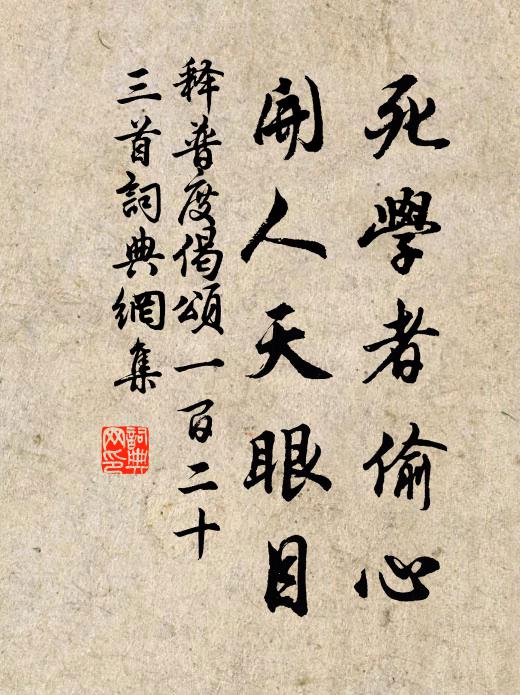 死學者偷心
開人天眼目
释普度偈頌一百二十
三首詞典網集
詞典网印